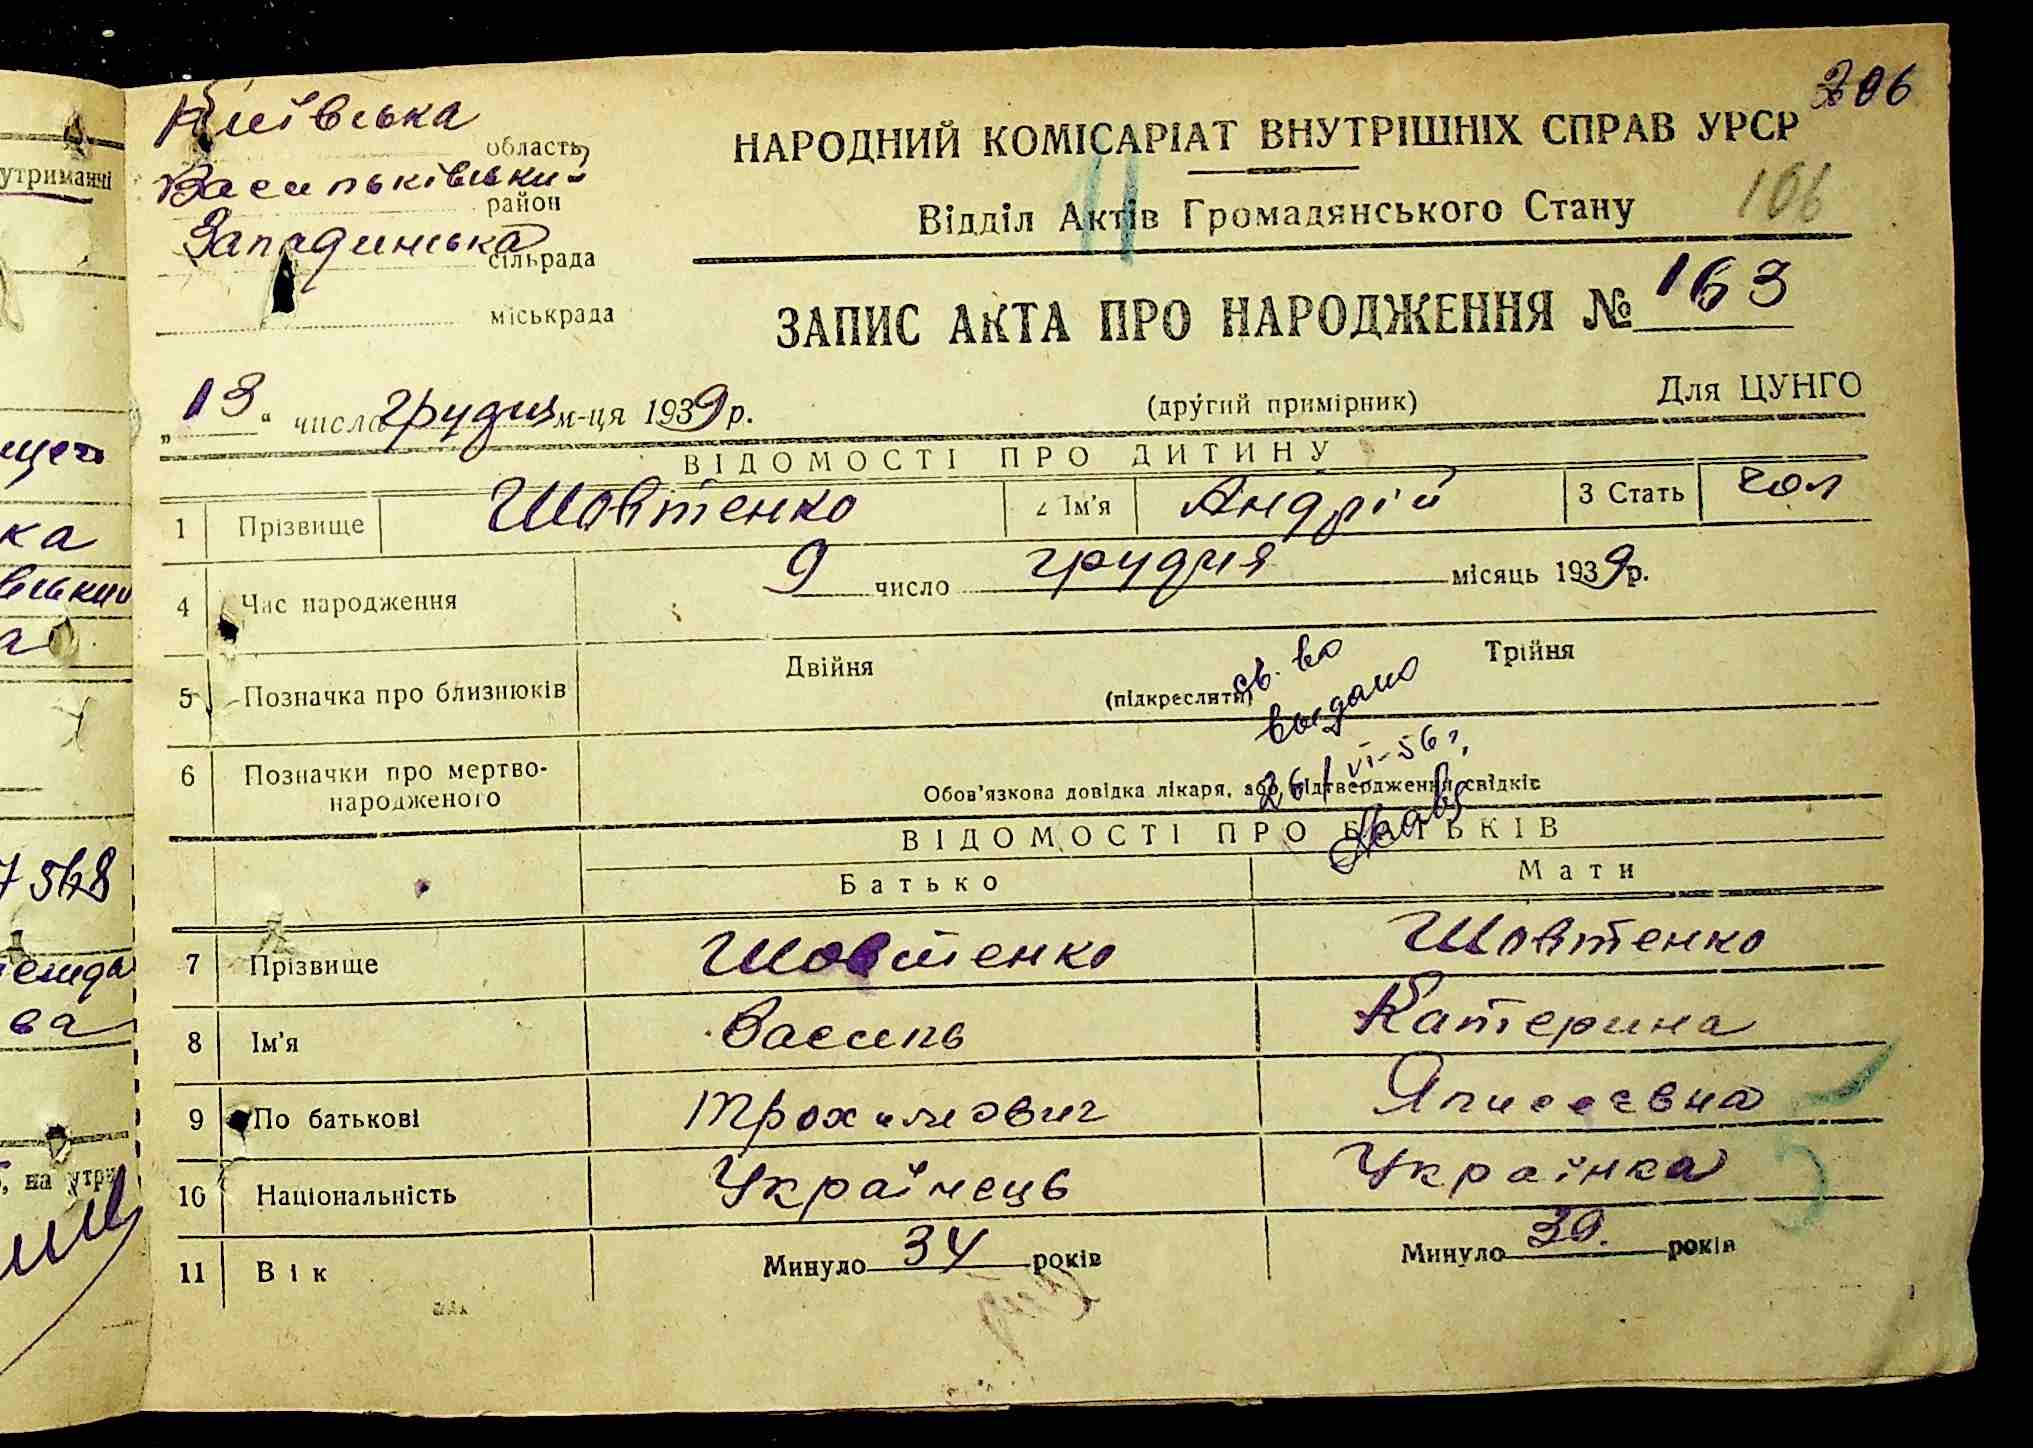 Київська
область
Васильківський
район
Западинська
сільрада
міськрада
206
НАРОДНИЙ КОМІСАРІАТ ВНУТРІШНІХ СПРАВ УРСР
106
Відділ Актів Громадянського Стану
ЗАПИС АКТА ПРО НАРОДЖЕННЯ № 163
„13“ числа грудня м-ця 1939 р.
(другий примірник)
Для ЦУНГО
ВІДОМОСТІ ПРО ДИТИНУ
1 Прізвище Шовтенко 2 Ім'я Андрій 3 Стать чол
4 Час народження 9 число грудня місяць 1939 р.
5 Позначка про близнюків Двійня (підкреслити) Трійня
св. во
выдано
26/VI-56 г.
6 Позначки про мертво-
народженого
Обов'язкова довідка лікаря, або підтвердження свідків
ВІДОМОСТІ ПРО БАТЬКІВ
Батько Мати
7 Прізвище Шовтенко Шовтенко
8 Ім'я Василь Катерина
9 По батькові Трохимович
10 Національність Українець Українка
11 Вік Минуло 34 років Минуло 30. років
утриманні
ка
7568
ва
, на утри